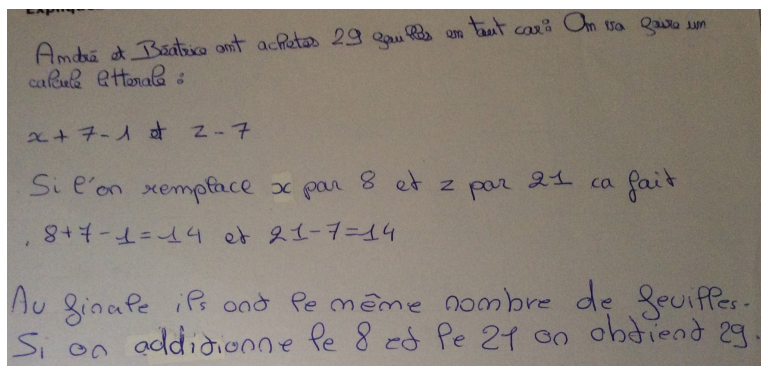 Expliquez
André et Béatrice ont achetes 29 feuilles en tout car: On va faire un
calcule litterale :
x + 7 - 1 et z - 7
Si l'on remplace x par 8 et z par 21 ca fait
8+7-1=14 et 21-7=14
Au finale ils ont le même nombre de feuilles.
Si on additionne le 8 et le 21 on obtient 29.